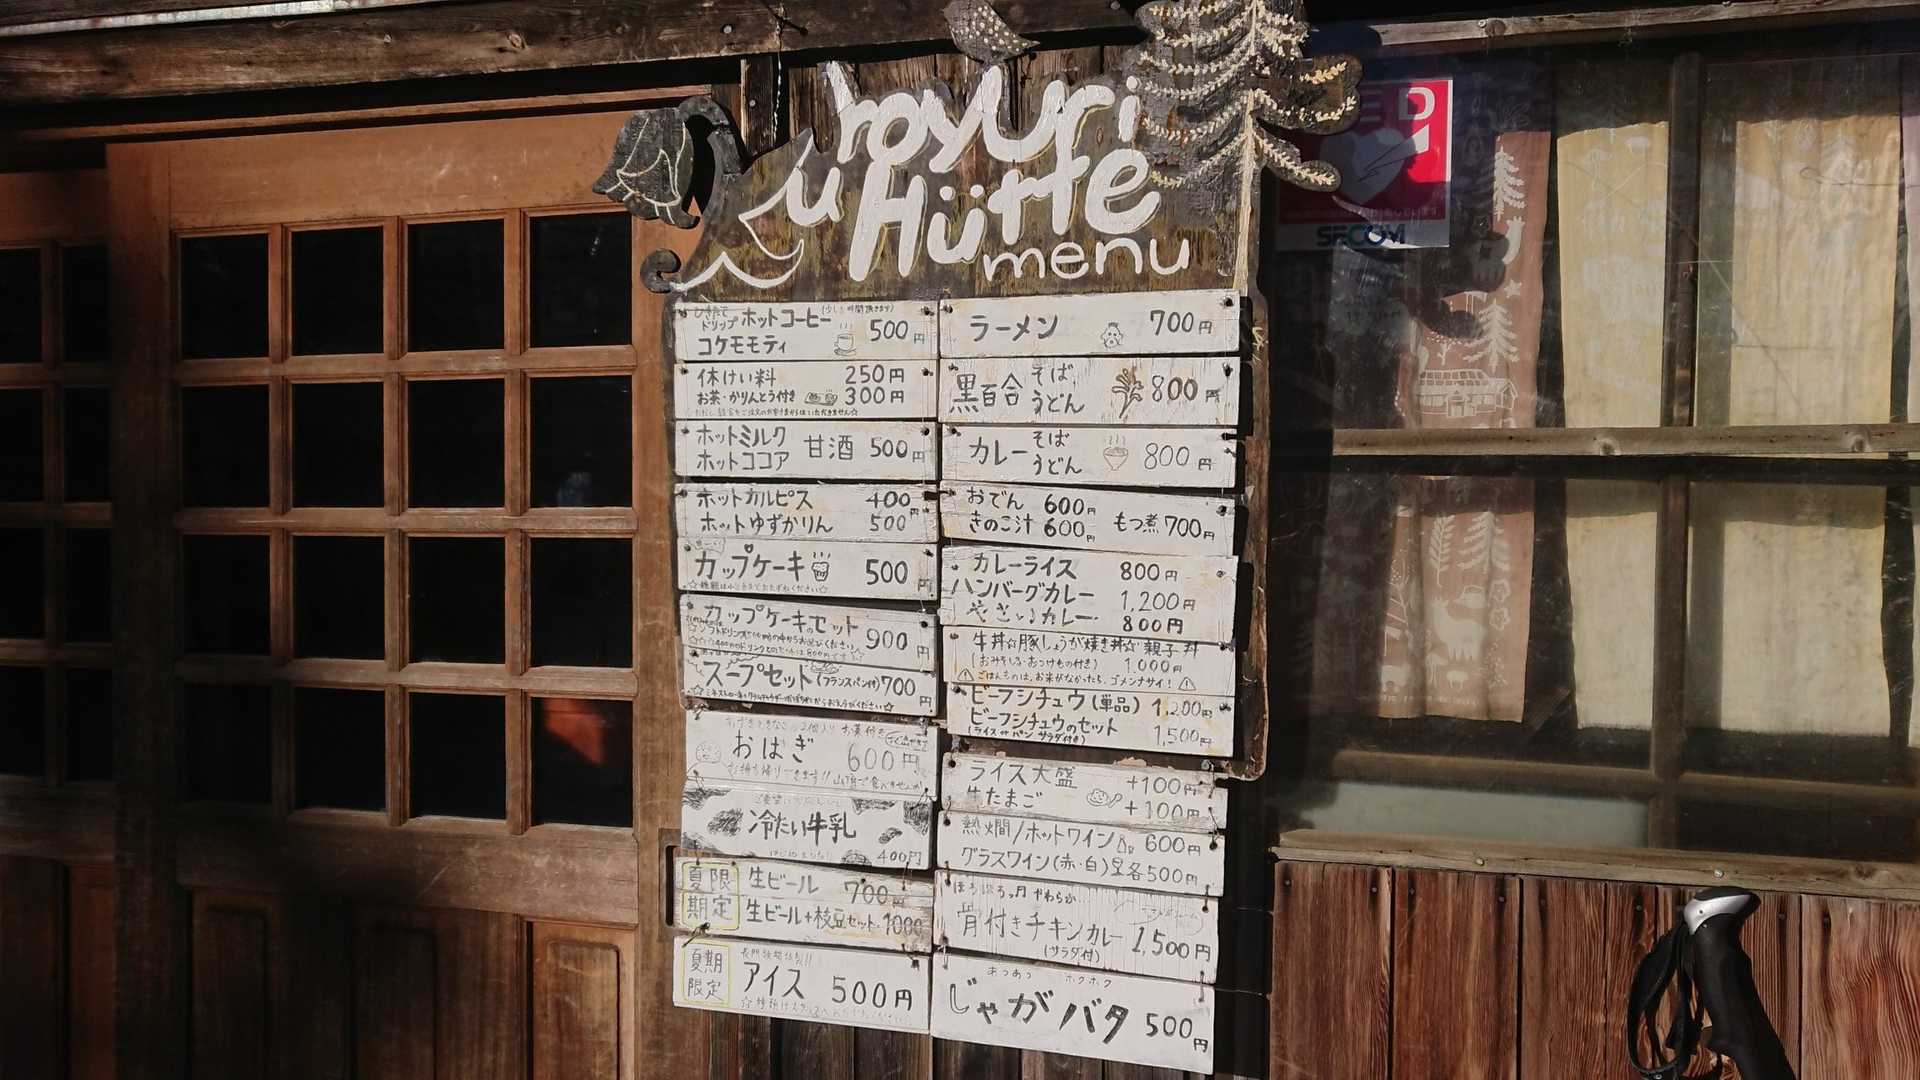 Kuroyuri
Hütte
menu
ひきたて
ドリップ ホットコーヒー
コケモモティ 500円
休けい料 250円
お茶・かりんとう付き 300円
ホットミルク
ホットココア 甘酒 500円
ホットカルピス 400円
ホットゆずかりん 500
カップケーキ 500円
カップケーキのセット 900円
スープセット(フランスパン付) 700円
お茶付き
おはぎ 600円
お持ち帰りできます!!
冷たい牛乳
400円
夏限期定 生ビール 700円
生ビール+枝豆セット 1000
夏期限定
アイス 500円
ラーメン 700円
黒百合 そば うどん 800円
カレー そば うどん 800円
おでん 600円
きのこ汁 600円 もつ煮 700円
カレーライス 800円
ハンバーグカレー 1,200円
カレー 800円
牛丼☆豚しょうが焼き丼☆親子丼
(おみそしる・おつけもの付き) 1,000円
ごはんものは、お米がなかったら、ゴメンナサイ!
ビーフシチュウ(単品) 1,200円
ビーフシチュウのセット
(ライス or パン サラダ付き) 1,500円
ライス大盛 +100円
生たまご +100円
熱燗/ホットワイン 600円
グラスワイン(赤・白) 各500円
ほろほろ やわらか
骨付きチキンカレー 1,500円
(サラダ付)
あつあつ ホクホク
じゃがバタ 500円
AED
SECOM